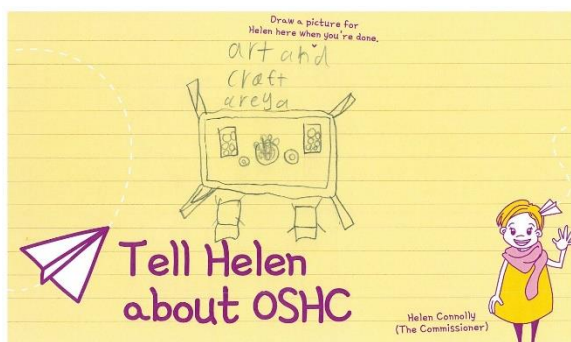 Draw a picture for
Helen here when you're done.
art and
craft
areya
Tell Helen
about OSHC
Helen Connolly
(The Commissioner)